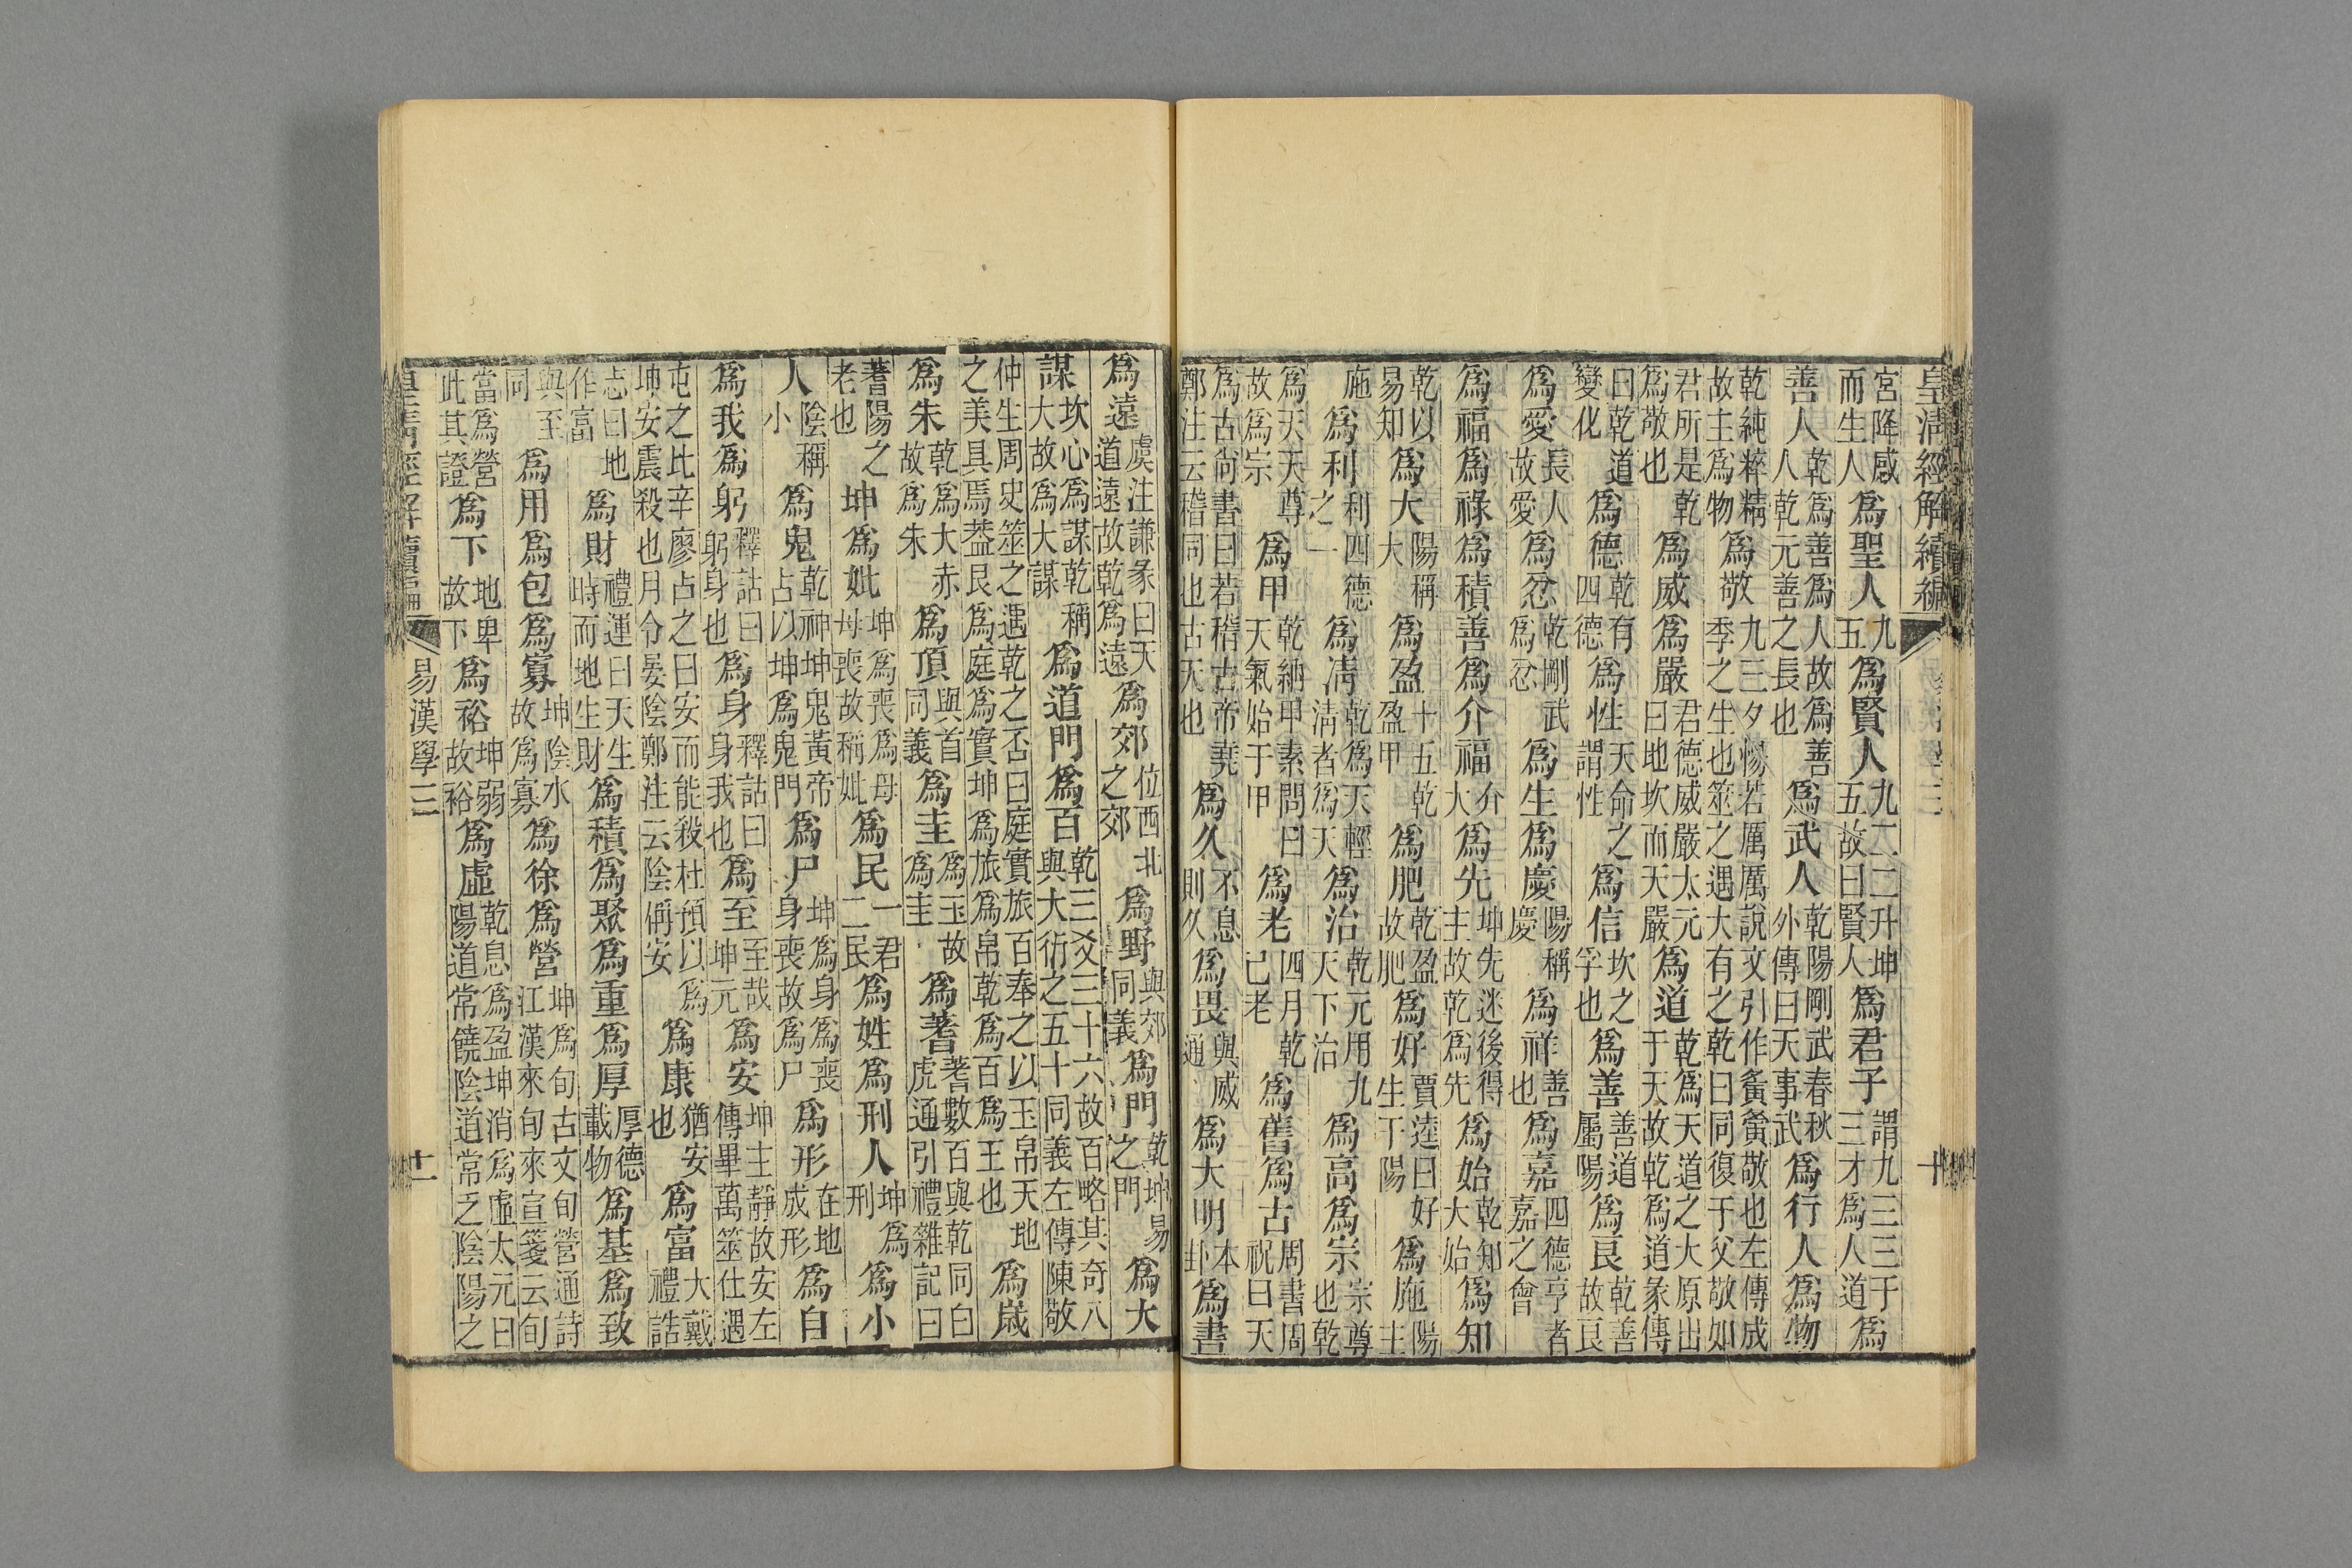 皇清經解續編 十
宮降感而生人爲聖人九五爲賢人九二二升坤五故曰賢人爲君子謂九三三于三才爲人道爲
善人乾爲善爲人故爲善人乾元善之長也爲武人乾陽剛武春秋外傳曰天事武爲行人爲物
乾純粹精故主爲物爲敬九三夕惕若厲厲說文引作夤夤敬也左傳成季之生也筮之遇大有之乾曰同復于父敬如
君所是乾爲敬也爲威爲嚴君德威嚴太元曰地坎而天嚴爲道乾爲天道之大原出于天故乾爲道彖傳
曰乾道變化爲德乾有四德爲性天命之謂性爲信坎之孚也爲善善道屬陽爲良乾善故良
爲愛長人故愛爲忿乾剛武爲忿爲生爲慶陽稱慶爲祥善也爲嘉四德亨者嘉之會
爲福爲祿爲積善爲介福介大爲先坤先迷後得主故乾爲先爲始乾知大始爲知
乾以易知爲大陽稱大爲盈十五乾盈甲爲肥乾盈故肥爲好賈逵曰好生于陽爲施陽主
施爲利利四德之一爲淸乾爲天輕淸者爲天爲治乾元用九天下治爲高爲宗宗尊也乾
爲天天尊故爲宗爲甲乾納甲素問曰天氣始于甲爲老四月乾已老爲舊爲古周書周祝曰天
爲古尙書曰若稽古帝堯鄭注云稽同也古天也爲久不息則久爲畏與威通爲大明本卦爲晝
爲遠虞注謙彖曰天道遠故乾爲遠爲郊位西北之郊爲野與郊同義爲門乾坤易之門爲大
謀坎心爲謀乾稱大故爲大謀爲道門爲百乾三爻三十六故百略其奇八與大衍之五十同義左傳陳敬
仲生周史筮之遇乾之否曰庭實旅百奉之以玉帛天地之美具焉葢艮爲庭爲實坤爲旅爲帛乾爲百爲王也爲歲
爲朱乾爲大赤故爲朱爲頂與首同義爲圭爲玉故爲圭爲蓍蓍數百與乾同白虎通引禮雜記曰
蓍陽之老也坤爲妣坤爲喪爲母母喪故稱妣爲民一君二民爲姓爲刑人坤爲刑爲小
人陰稱小爲鬼乾神坤鬼黃帝占以坤爲鬼門爲尸坤爲身爲喪身喪故爲尸爲形在地成形爲自
爲我爲躬釋詁曰躬身也爲身釋詁曰身我也爲至至哉坤元爲安坤主靜故安左傳畢萬筮仕遇
屯之比辛廖占之曰安而能殺杜預以爲坤安震殺也月令晏陰鄭注云陰偁安爲康猶安也爲富大戴禮誥
志曰地作富爲財禮運曰天生時而地生財爲積爲聚爲重爲厚厚德載物爲基爲致
與至同爲用爲包爲寡坤陰水故爲寡爲徐爲營坤爲旬古文旬營通詩江漢來旬來宣箋云旬
當爲營此其證爲下地卑故下爲裕坤弱故裕爲虛乾息爲盈坤消爲虛太元曰陽道常饒陰道常乏陰陽之
皇淸經解續編 易漢學三 十一